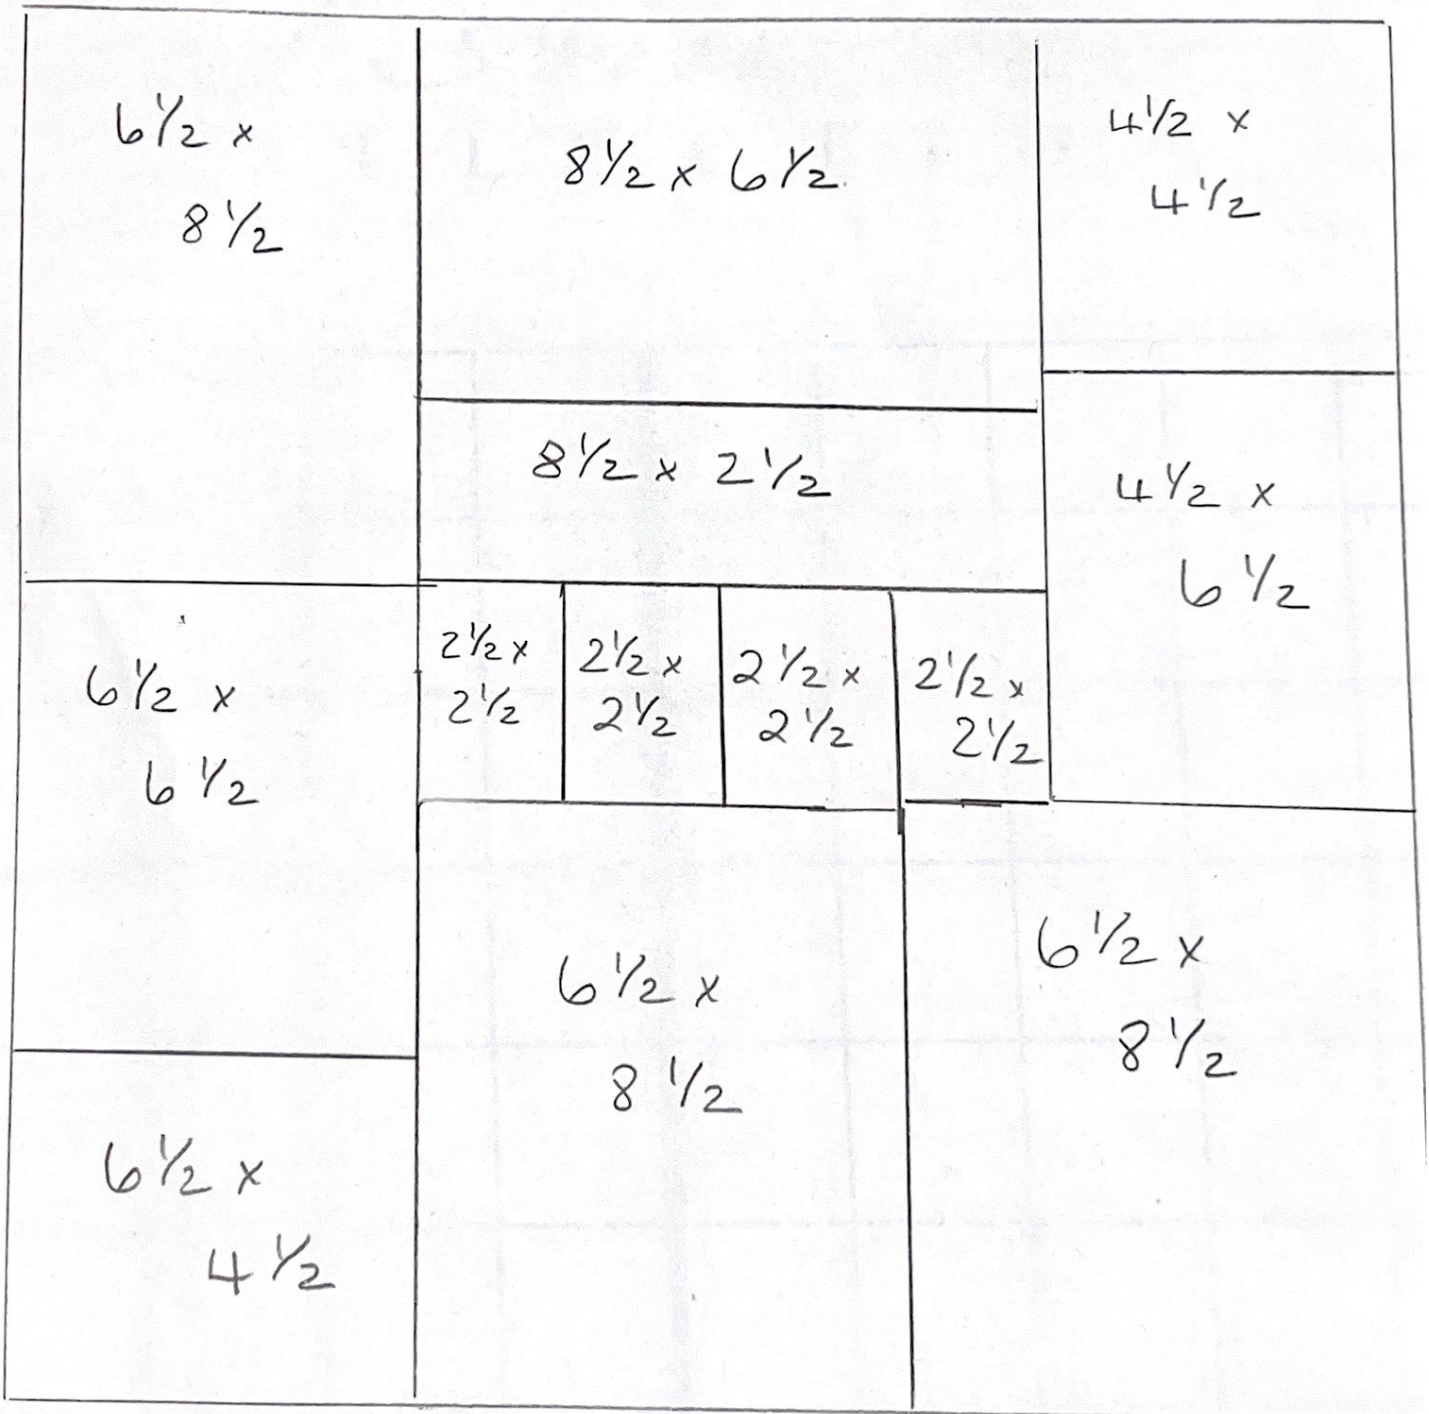 6 1/2 x
8 1/2
8 1/2 x 6 1/2
4 1/2 x
4 1/2
8 1/2 x 2 1/2
4 1/2 x
6 1/2
6 1/2 x
6 1/2
2 1/2 x
2 1/2
2 1/2 x
2 1/2
2 1/2 x
2 1/2
2 1/2 x
2 1/2
6 1/2 x
4 1/2
6 1/2 x
8 1/2
6 1/2 x
8 1/2